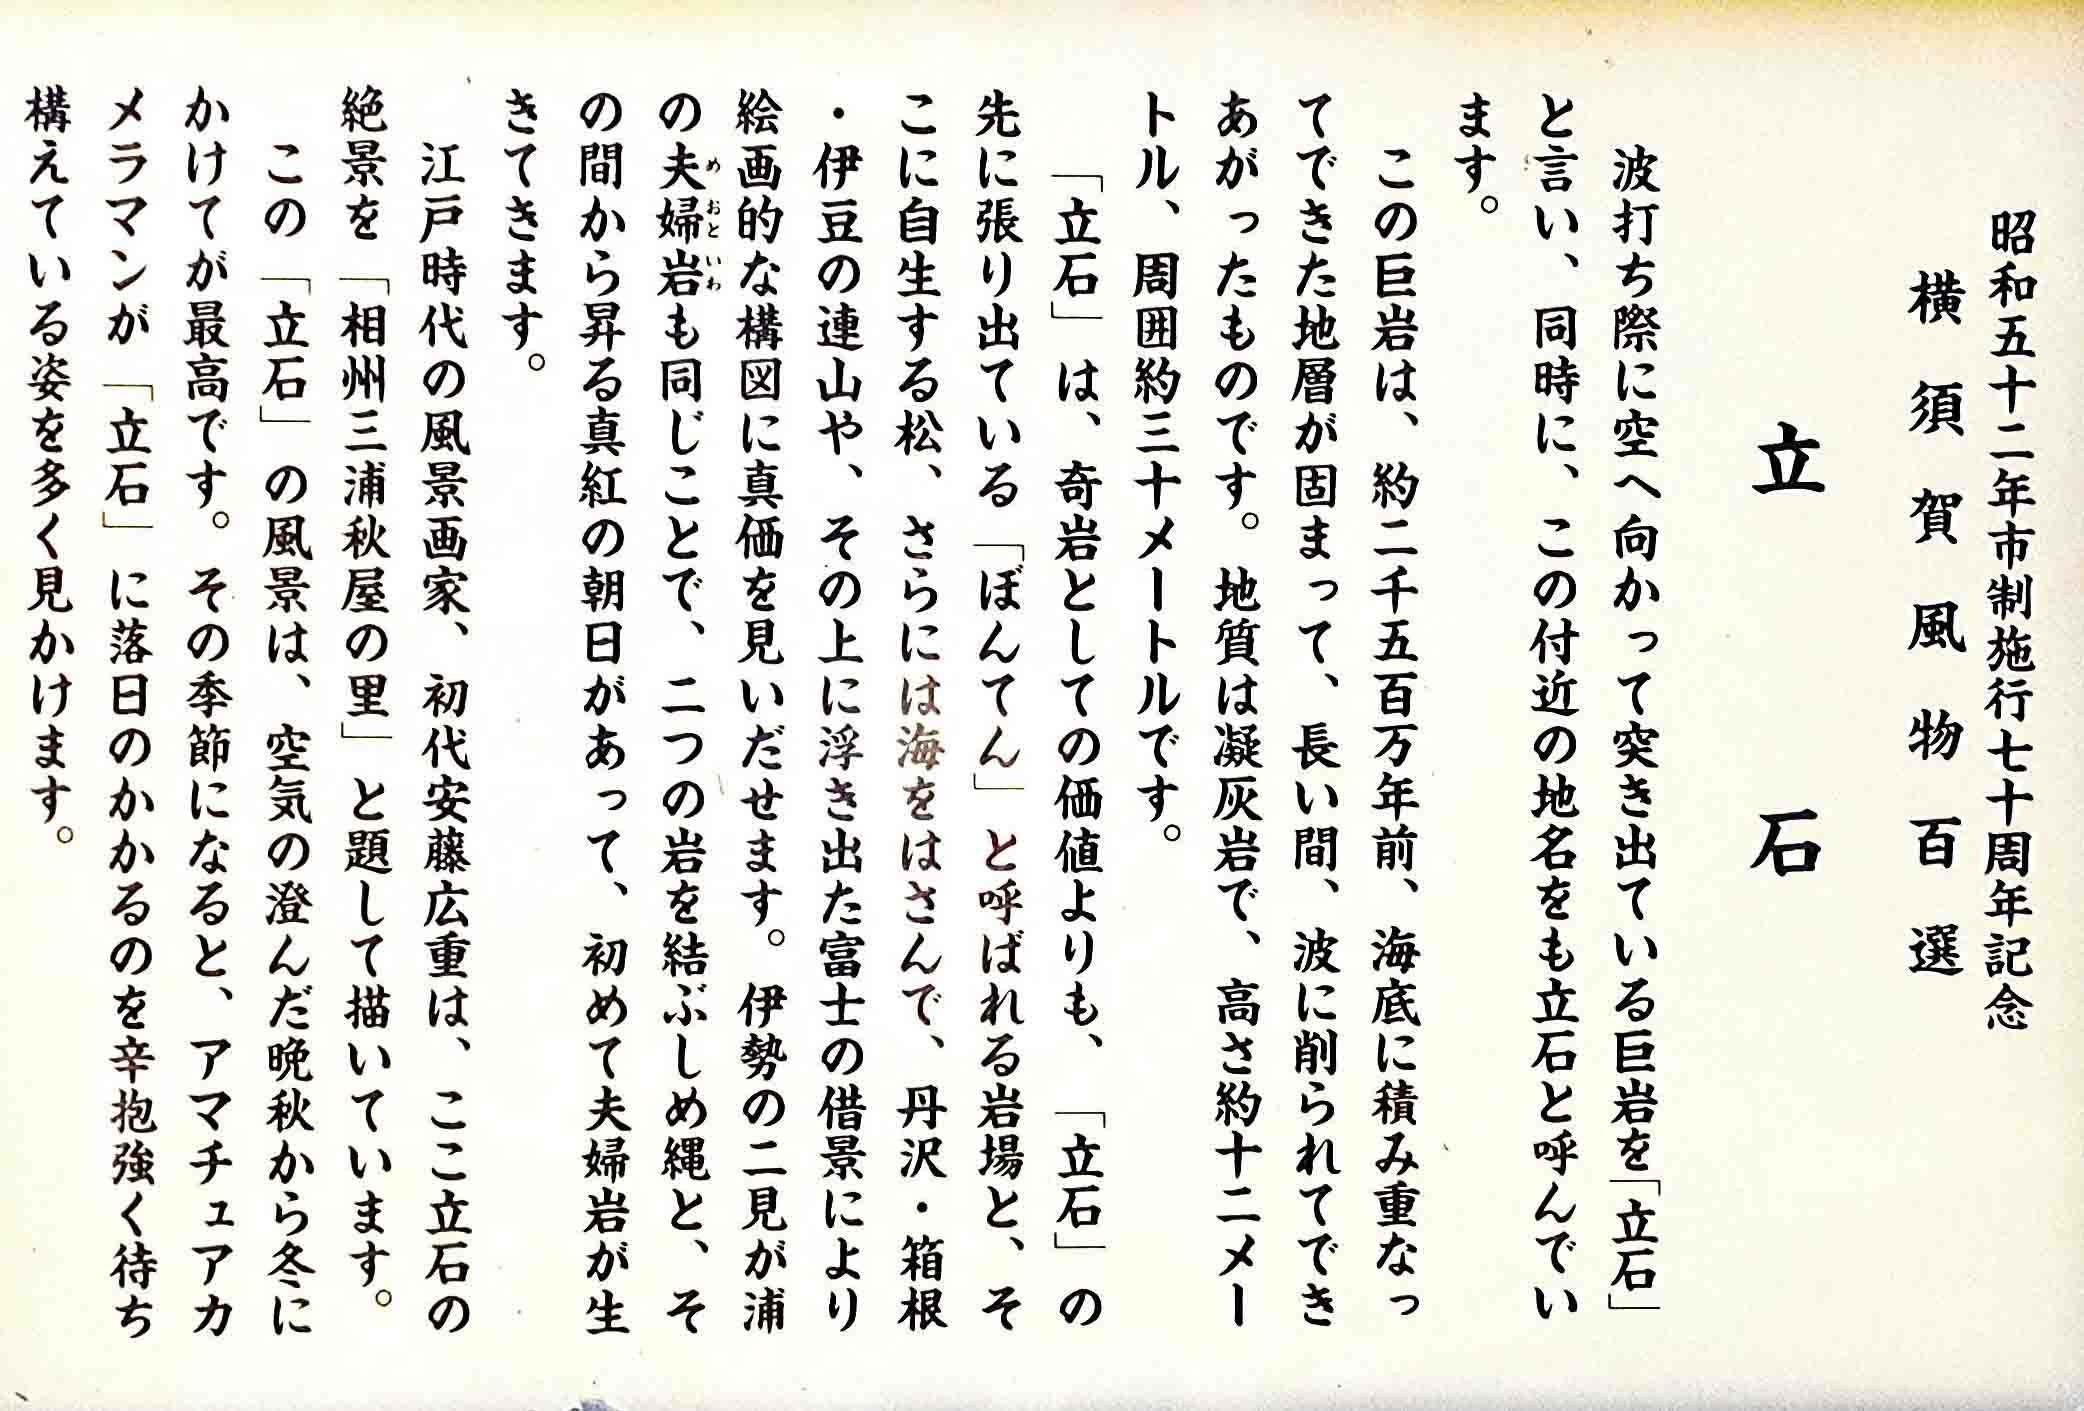 昭和五十二年市制施行七十周年記念
横須賀風物百選
立石
波打ち際に空へ向かって突き出ている巨岩を「立石」
と言い、同時に、この付近の地名をも立石と呼んでい
ます。
この巨岩は、約二千五百万年前、海底に積み重なっ
てできた地層が固まって、長い間、波に削られてでき
あがったものです。地質は凝灰岩で、高さ約十二メー
トル、周囲約三十メートルです。
「立石」は、奇岩としての価値よりも、「立石」の
先に張り出ている「ぼんてん」と呼ばれる岩場と、そ
こに自生する松、さらには海をはさんで、丹沢・箱根
・伊豆の連山や、その上に浮き出た富士の借景により
絵画的な構図に真価を見いだせます。伊勢の二見が浦
の夫婦岩も同じことで、二つの岩を結ぶしめ縄と、そ
めおといわ
の間から昇る真紅の朝日があって、初めて夫婦岩が生
きてきます。
江戸時代の風景画家、初代安藤広重は、ここ立石の
絶景を「相州三浦秋屋の里」と題して描いています。
この「立石」の風景は、空気の澄んだ晩秋から冬に
かけてが最高です。その季節になると、アマチュアカ
メラマンが「立石」に落日のかかるのを辛抱強く待ち
構えている姿を多く見かけます。